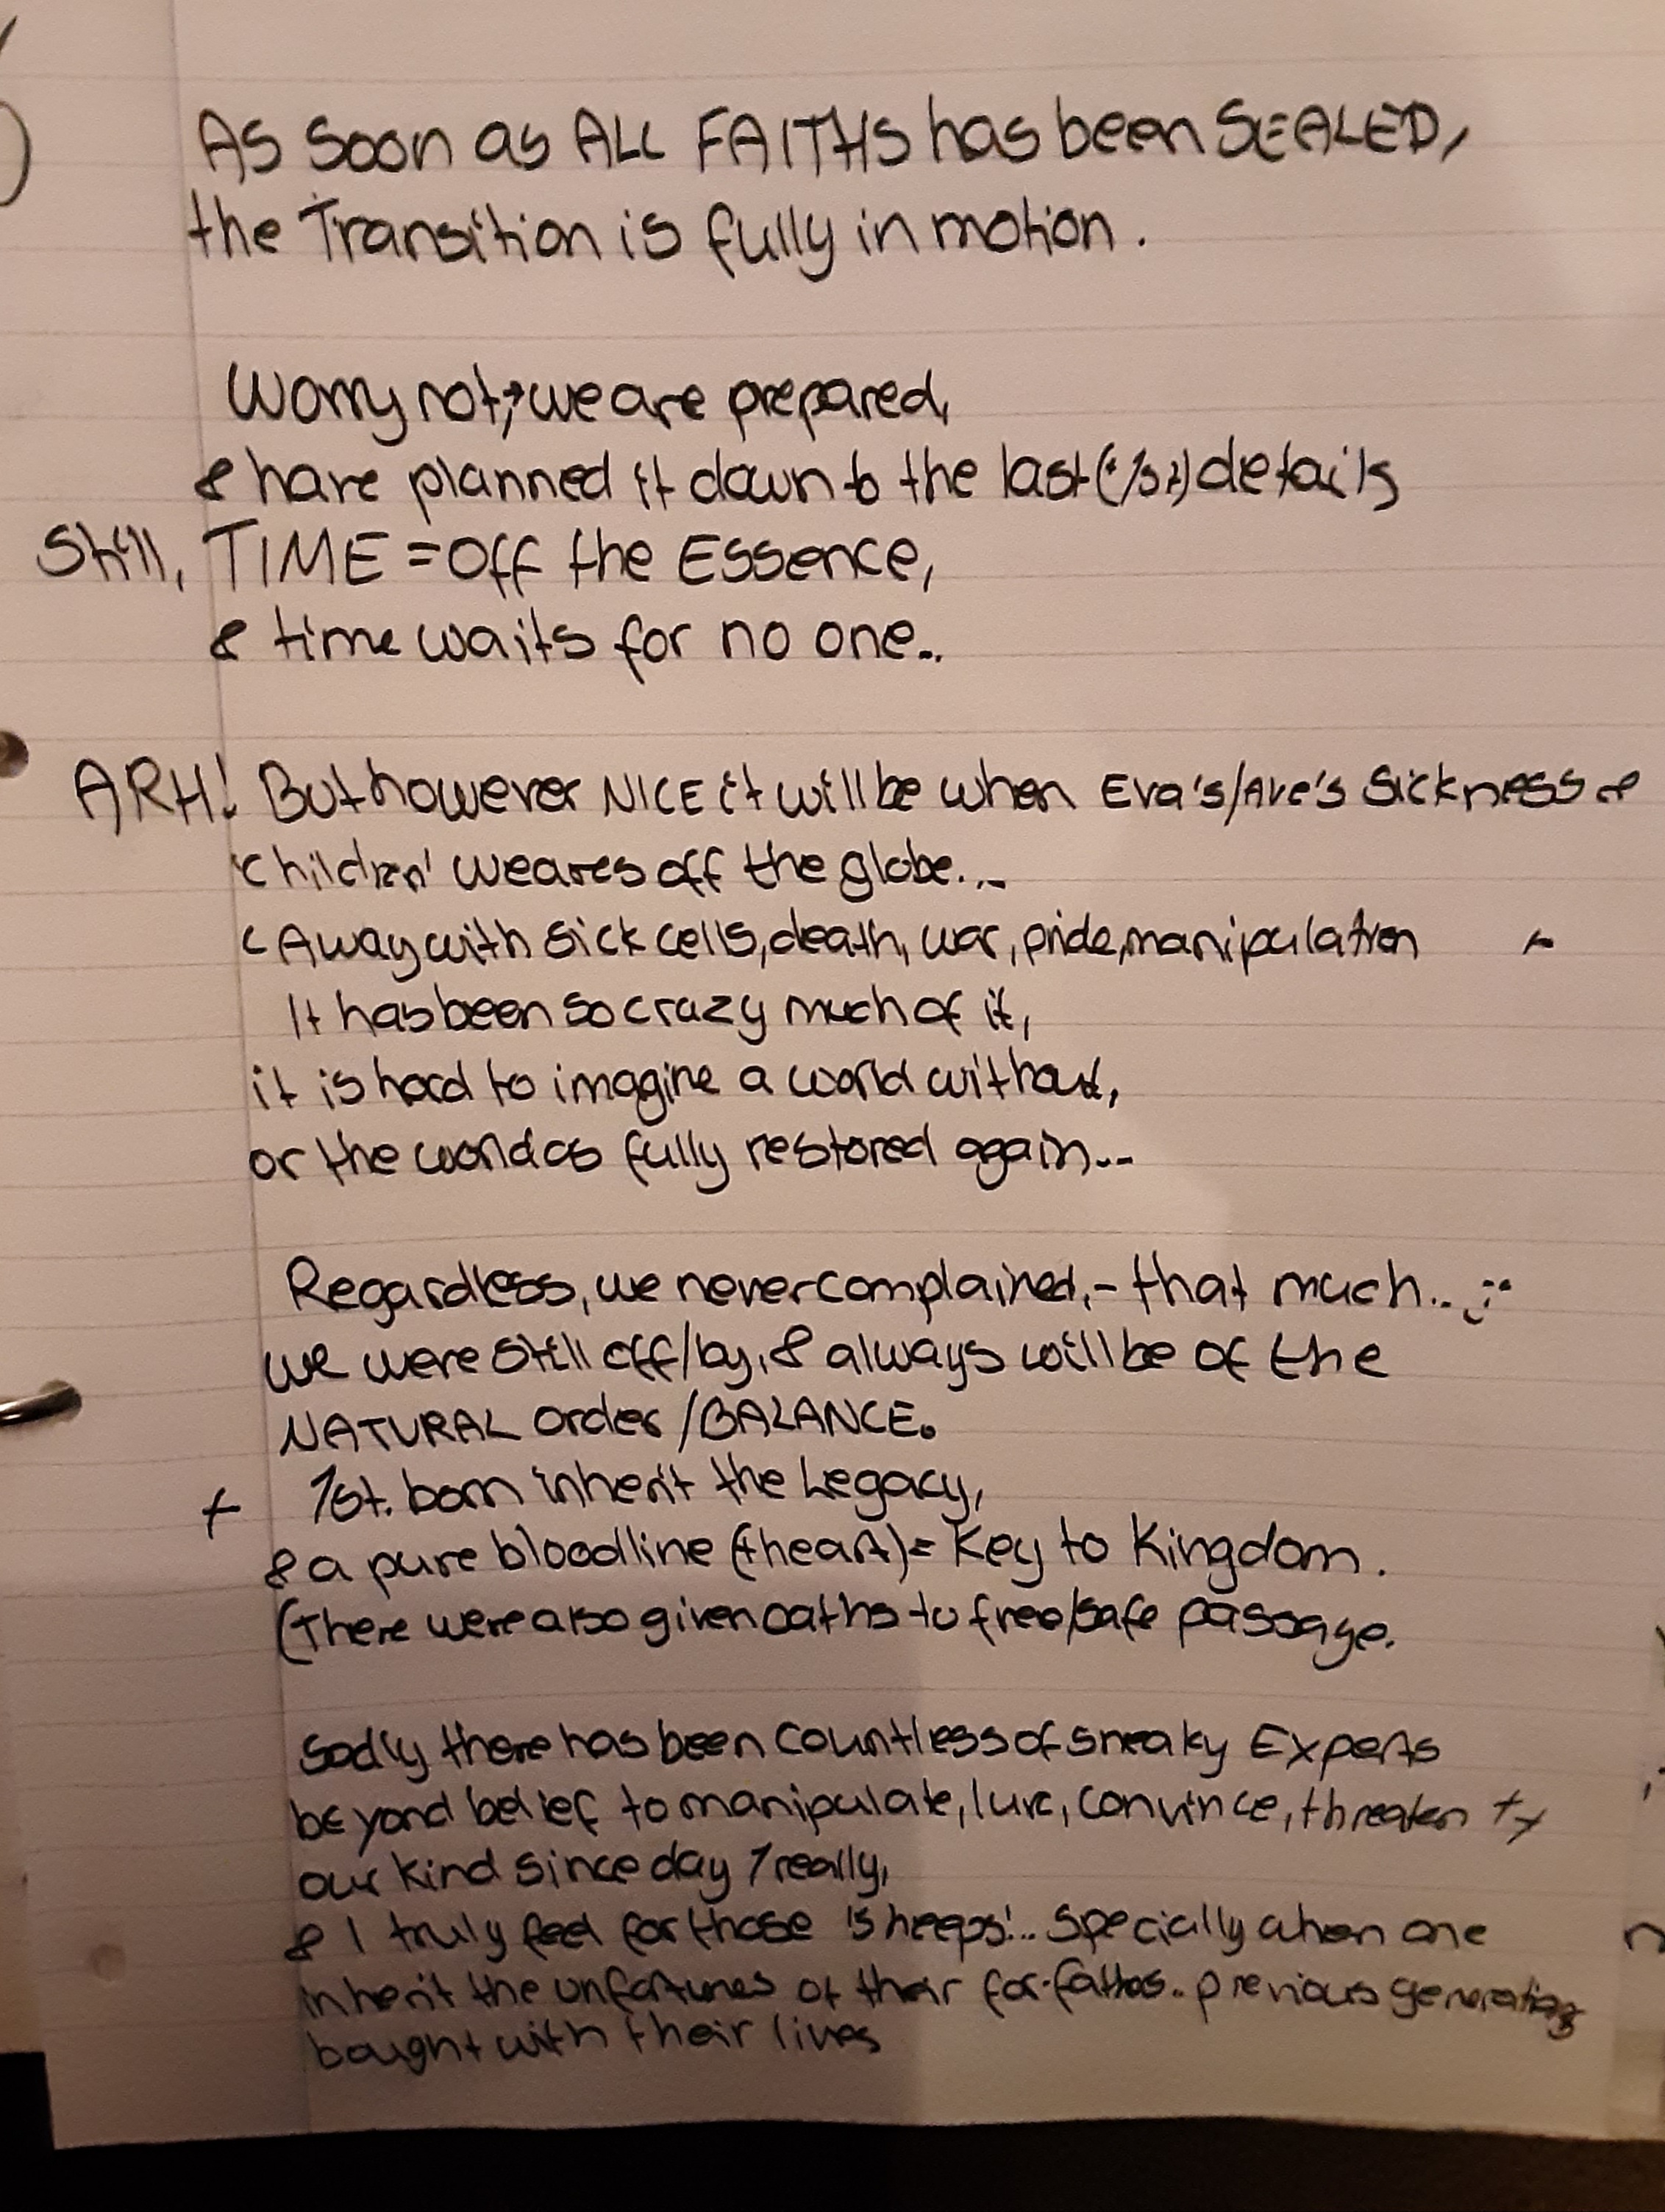 As Soon as ALL FAITHS has been SEALED,
the Transition is fully in motion.
Worry not, we are prepared,
& have planned it down to the last details
Still, TIME = Off the Essence,
& time waits for no one..
ARH! But however NICE it will be when Eva's/Ave's Sickness &
'Children' weares off the globe...
(Away with sick cells, death, war, pride, manipulation
It has been so crazy much of it,
it is hard to imagine a world without,
or the world as fully restored again...
Regardless, we never complained, - that much.. ;-
we were still off/by, & always will be of the
NATURAL Order /BALANCE.
+ 1st. born inherit the Legacy,
& a pure bloodline (+heart) = Key to Kingdom.
(There were also given oaths to free/safe passage.
Sadly there has been countless of sneaky Experts
beyond belief to manipulate, lure, convince, threaten ++
our kind since day 1 really,
& I truly feel for those 'sheeps'... Specially when one
inherit the unfortunes of their previous generations
bought with their lives